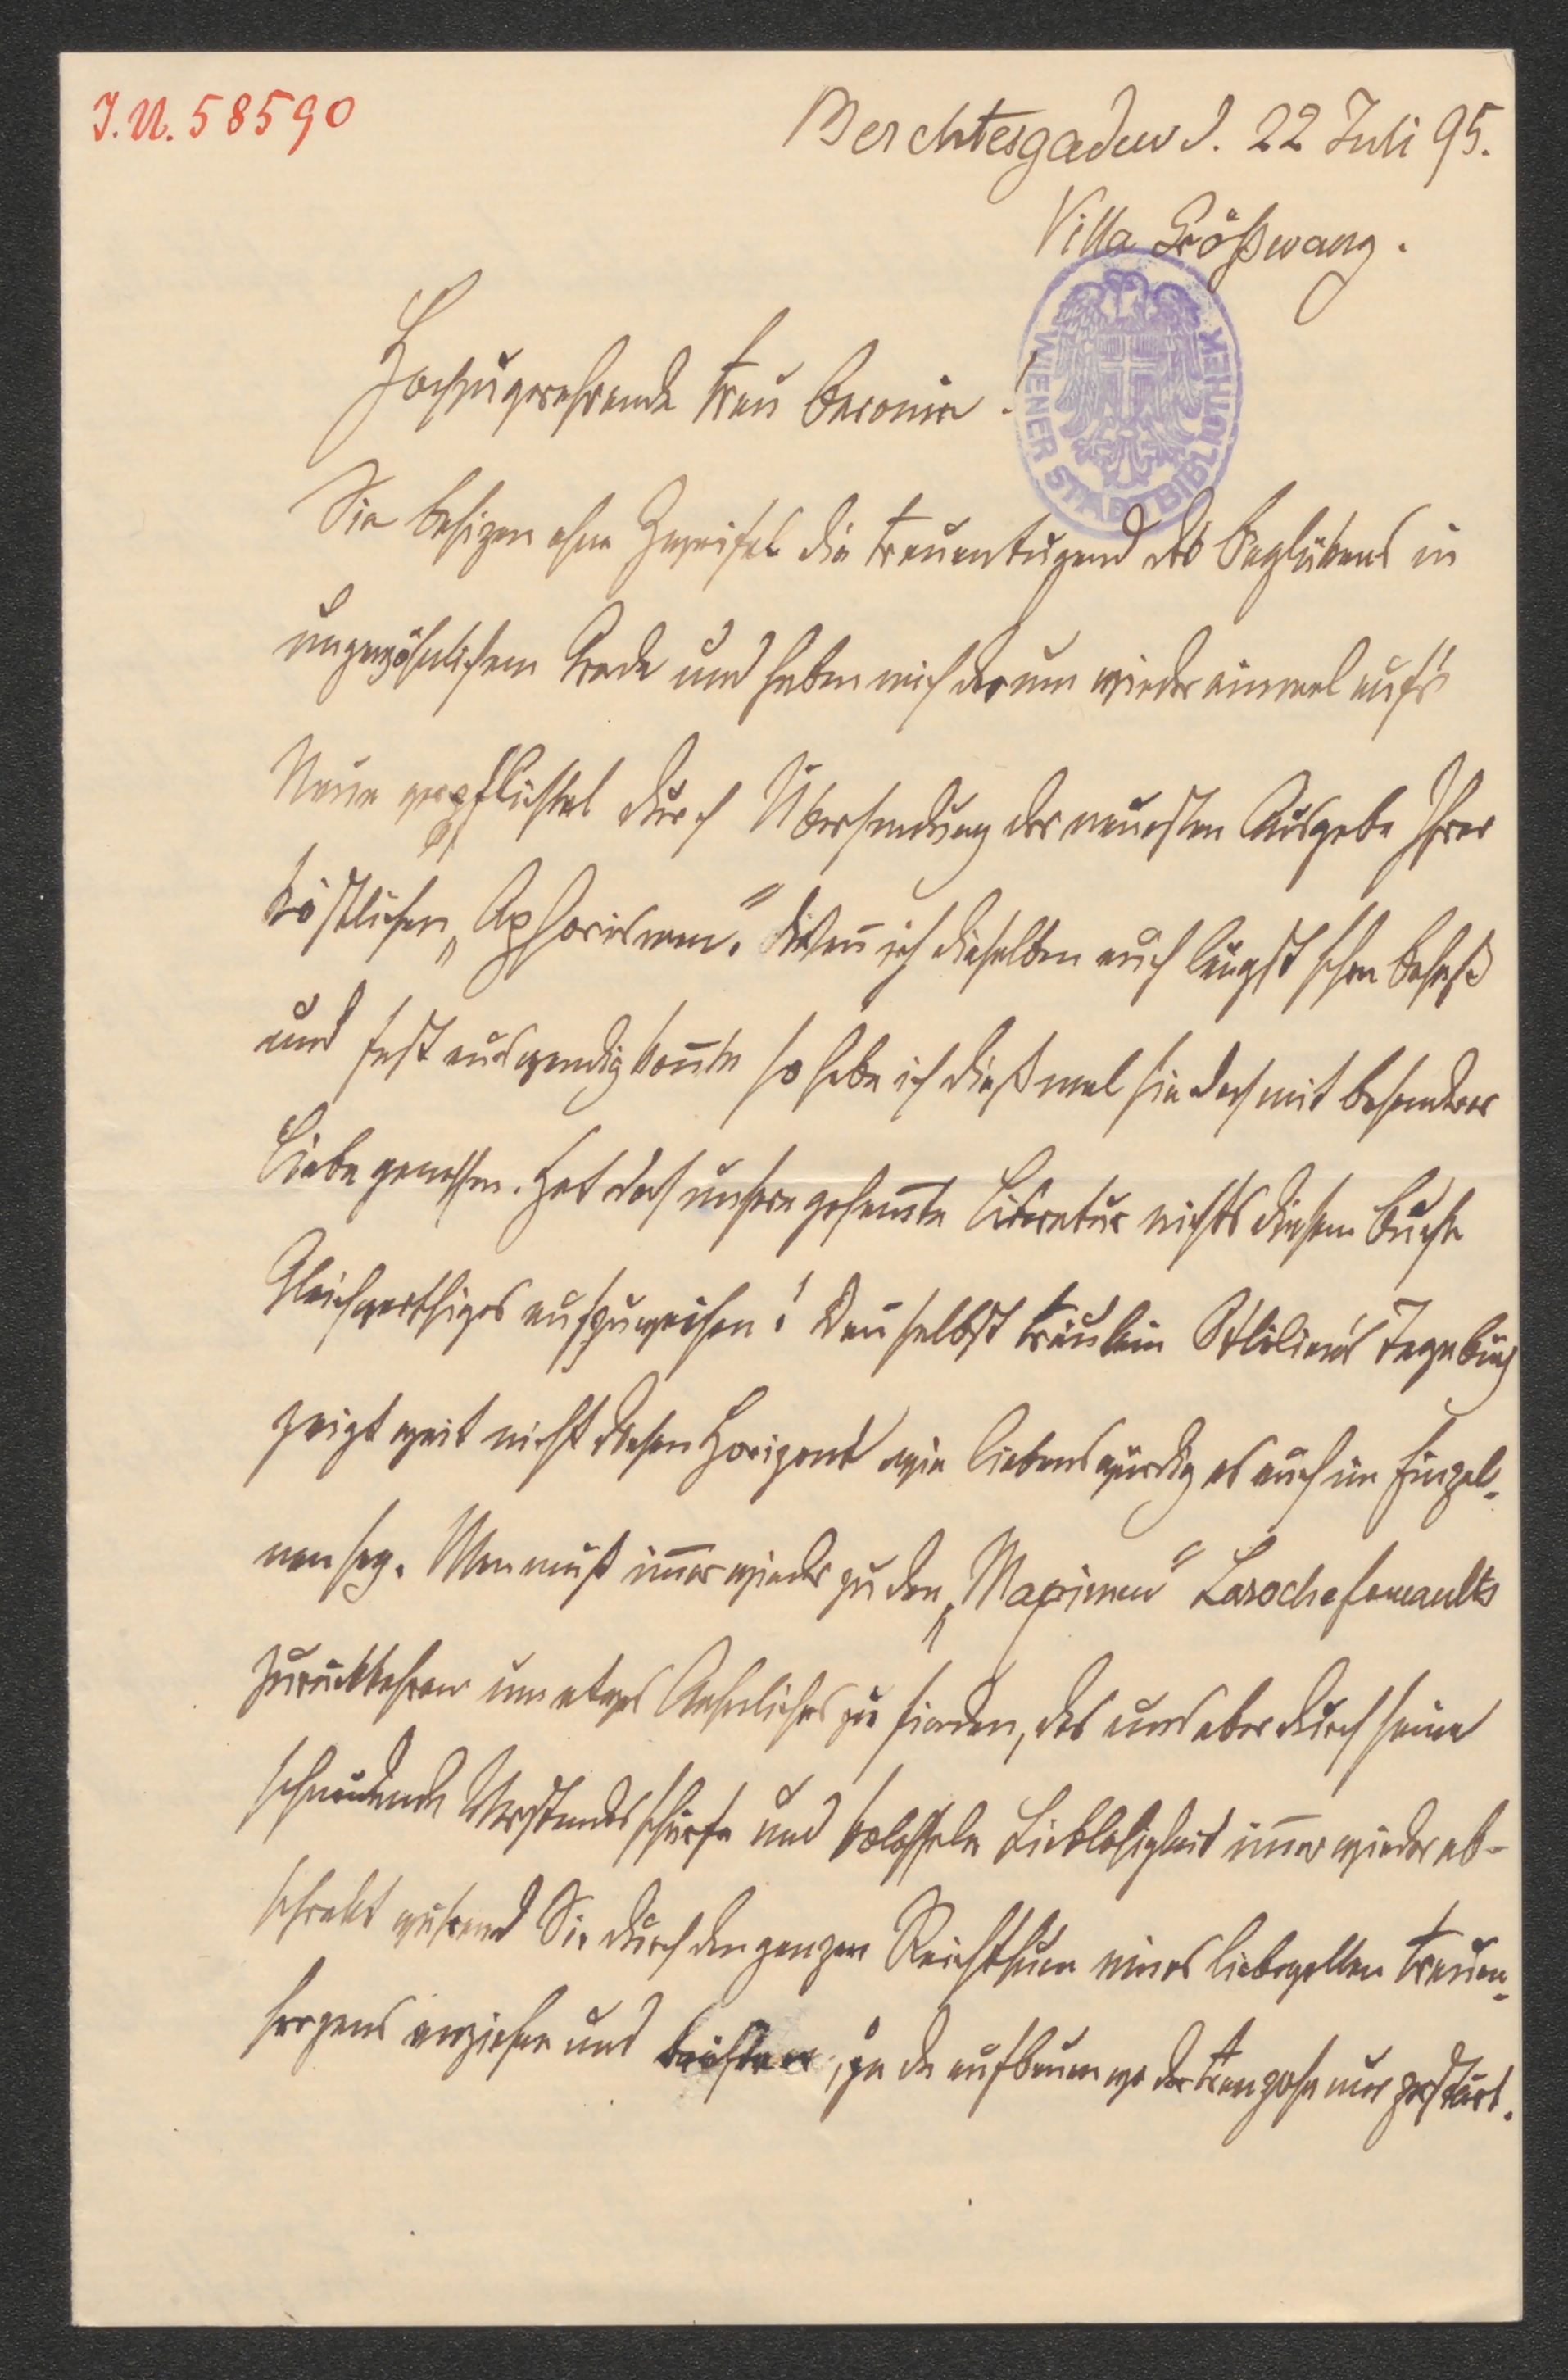 J.N. 58590
Berchtesgaden d. 22 Juli 95.
Villa Größwang.
WIENER STADTBIBLIOTHEK
Hochzuverehrende Frau Baronin!
Sie besizen ohne Zweifel die Frauentugend des Beglükens in
ungewöhnlichem Grade und haben mich darum wieder einmal aufs
Neue verpflichtet durch Übersendung der neuesten Ausgabe Ihrer
köstlichen „Aphorismen." Wenn ich dieselben auch längst schon besaß
und fast auswendig konnte so habe ich dießmal sie doch mit besondrer
Liebe genossen. Hat doch unsere gesamte Literatur nichts diesem Buche
Gleichwerthiges aufzuweisen! Denn selbst Fräulein Ottilien's Tagebuch
zeigt weit nicht diesen Horizont wie liebenswürdig es auch im Einzel-
nen sey. Man muß immer wieder zu den „Maximen" Larochefoucaults
zurückkehren um etwas Aehnliches zu finden, das uns aber durch seine
schneidende Verstandesschärfe und kolossale Lieblosigkeit immer wieder ab-
schrekt während Sie durch den ganzen Reichthum eines liebevollen Frauen-
herzens erziehen und trösten, ja da aufbauen wo der Franzose nur zerstört.